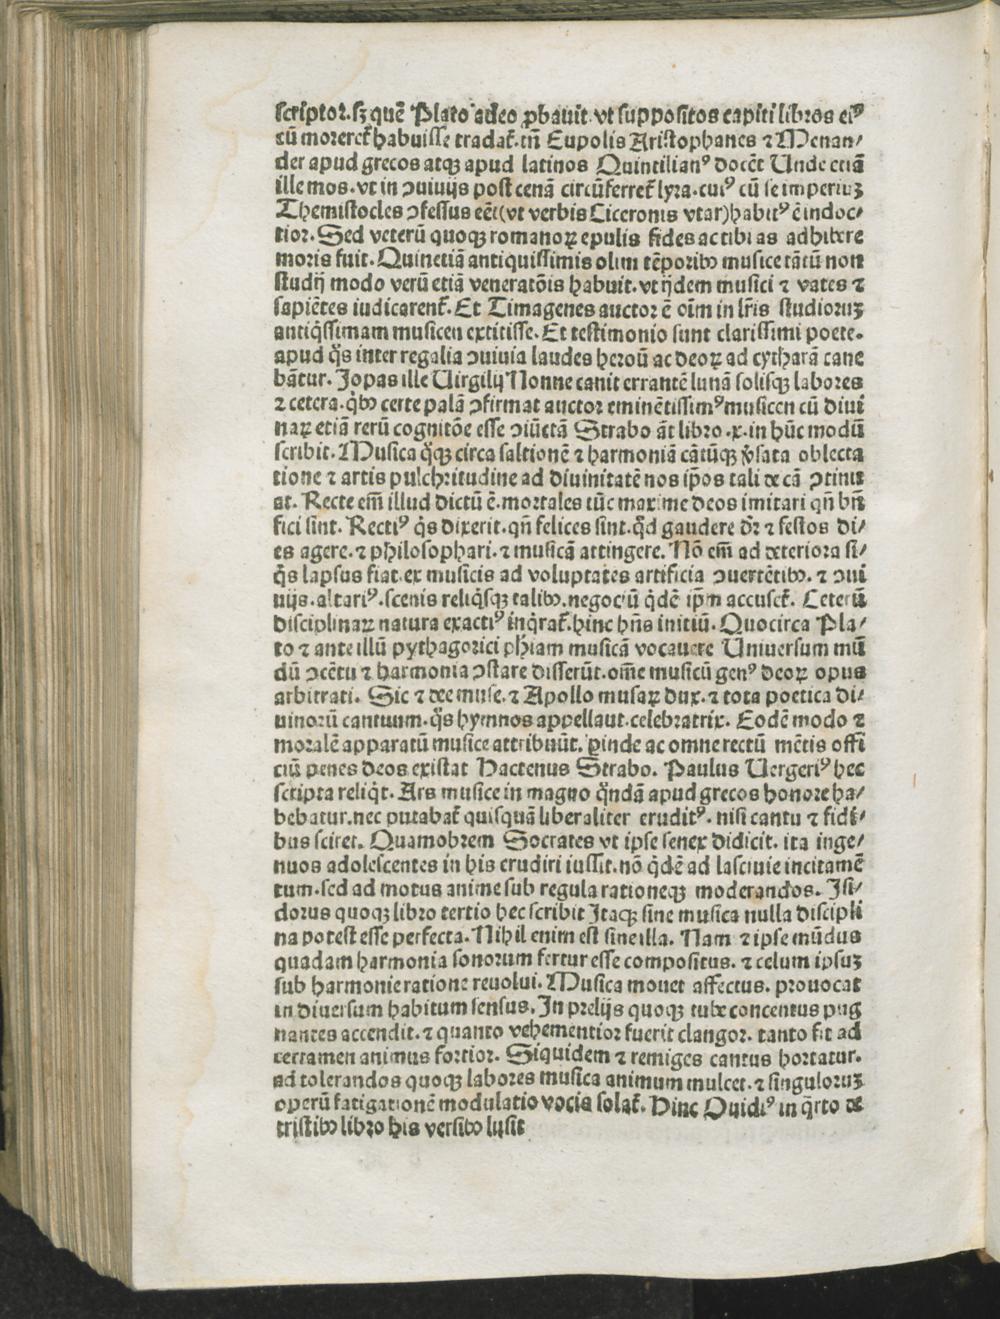 scriptor. sꝫ quē Plato adeo ꝓbauit. vt suppositos capiti libros eiꝰ
cū morereť habuisse tradať. tñ Eupolis Aristophanes ⁊ Menan/
der apud grecos atqꝫ apud latinos Quintilianꝰ docēt Unde etiā
ille mos. vt in ↄuiuijs post cenā circūferreť lyra. cuiꝰ cū se imperituꝫ
Themistocles ↄfessus eēt(vt verbis Ciceronis vtar)habitꝰ ē indoc/
tior. Sed veterū quoqꝫ romanoꝝ epulis fides ac tibias adhibere
moris fuit. Quinetiā antiquissimis olim tēporibꝰ musice tātū non
studij modo verū etiā veneratōis habuit. vt ijdem musici ⁊ vates ⁊
sapiētes iudicarenť. Et Timagenes auctor ē oīm in lr̄is studioruꝫ
antiq̄ssimam musicen extitisse. Et testimonio sunt clarissimi poete.
apud q̊s inter regalia ↄuiuia laudes heroū ac deoꝝ ad cytharā cane
bātur. Jopas ille Uirgilij Nonne canit errantē lunā solisqꝫ labores
⁊ cetera. q̇bꝰ certe palā ↄfirmat auctor eminētissimꝰ musicen cū diui
naꝝ etiā rerū cognitōe esse ↄiūctā Strabo āt libro .x. in hūc modū
scribit. Musica q̊qꝫ circa saltionē ⁊ harmoniā cātūqꝫ ꝟsata oblecta
tione ⁊ artis pulchritudine ad diuinitatē nos ip̄os tali de cā ↄtinu
at. Recte em̄ illud dictū ē. mortales tūc maxime deos imitari qn̄ bn̄
fici sint. Rectiꝰ q̇s dixerit. qn̄ felices sint. q̊d gaudere dr̄ ⁊ festos di/
es agere. ⁊ philosophari. ⁊ musicā attingere. Nō em̄ ad deteriora si/
q̇s lapsus fiat. ex musicis ad voluptates artificia ↄuertētibꝰ. ⁊ ↄui
uijs. altariꝰ. scenis reliq̇sqꝫ talibꝰ. negociū q̇dē ip̄m accuseť. Ceterū
disciplinaꝝ natura exactiꝰ inq̇rať. hinc hn̄s initiū. Quocirca Pla/
to ⁊ ante illū pythagorici ph̄iam musicā vocauere Uniuersum mū
dū ↄcētu ⁊ harmonia ↄstare disserūt. om̄e musicū genꝰ deoꝝ opus
arbitrati. Sic ⁊ dee muse. ⁊ Apollo musaꝝ dux. ⁊ tota poetica di/
uinorū cantuum. q̊s hymnos appellaut. celebratrix. Eodē modo ⁊
moralē apparatū musice attribuūt. ꝑinde ac omne rectū mētis offi
ciū penes deos existat Hactenus Strabo. Paulus Uergeriꝰ hec
scripta reliq̇t. Ars musice in magno q̊ndā apud grecos honore ha/
bebatur. nec putabať quisquā liberaliter eruditꝰ. nisi cantu ⁊ fidi/
bus sciret. Quamobrem Socrates vt ipse senex didicit. ita inge/
nuos adolescentes in his erudiri iussit. nō q̇dē ad lasciuie incitamē
tum. sed ad motus anime sub regula rationeqꝫ moderandos. Isi/
dorus quoqꝫ libro tertio hec scribit Itaqꝫ sine musica nulla discipli
na potest esse perfecta. Nihil enim est sine illa. Nam ⁊ ipse mūdus
quadam harmonia sonorum fertur esse compositus. ⁊ celum ipsuꝫ
sub harmonie ratione reuolui. Musica mouet affectus. prouocat
in diuersum habitum sensus. In prelijs quoqꝫ tube concentus pug
nantes accendit. ⁊ quanto vehementior fuerit clangor. tanto fit ad
certamen animus fortior. Siquidem ⁊ remiges cantus hortatur.
ad tolerandos quoqꝫ labores musica animum mulcet. ⁊ singuloruꝫ
operū fatigationē modulatio vocis solať. Hinc Ouidiꝰ in q̄rto de
tristibꝰ libro his versibꝰ lusit